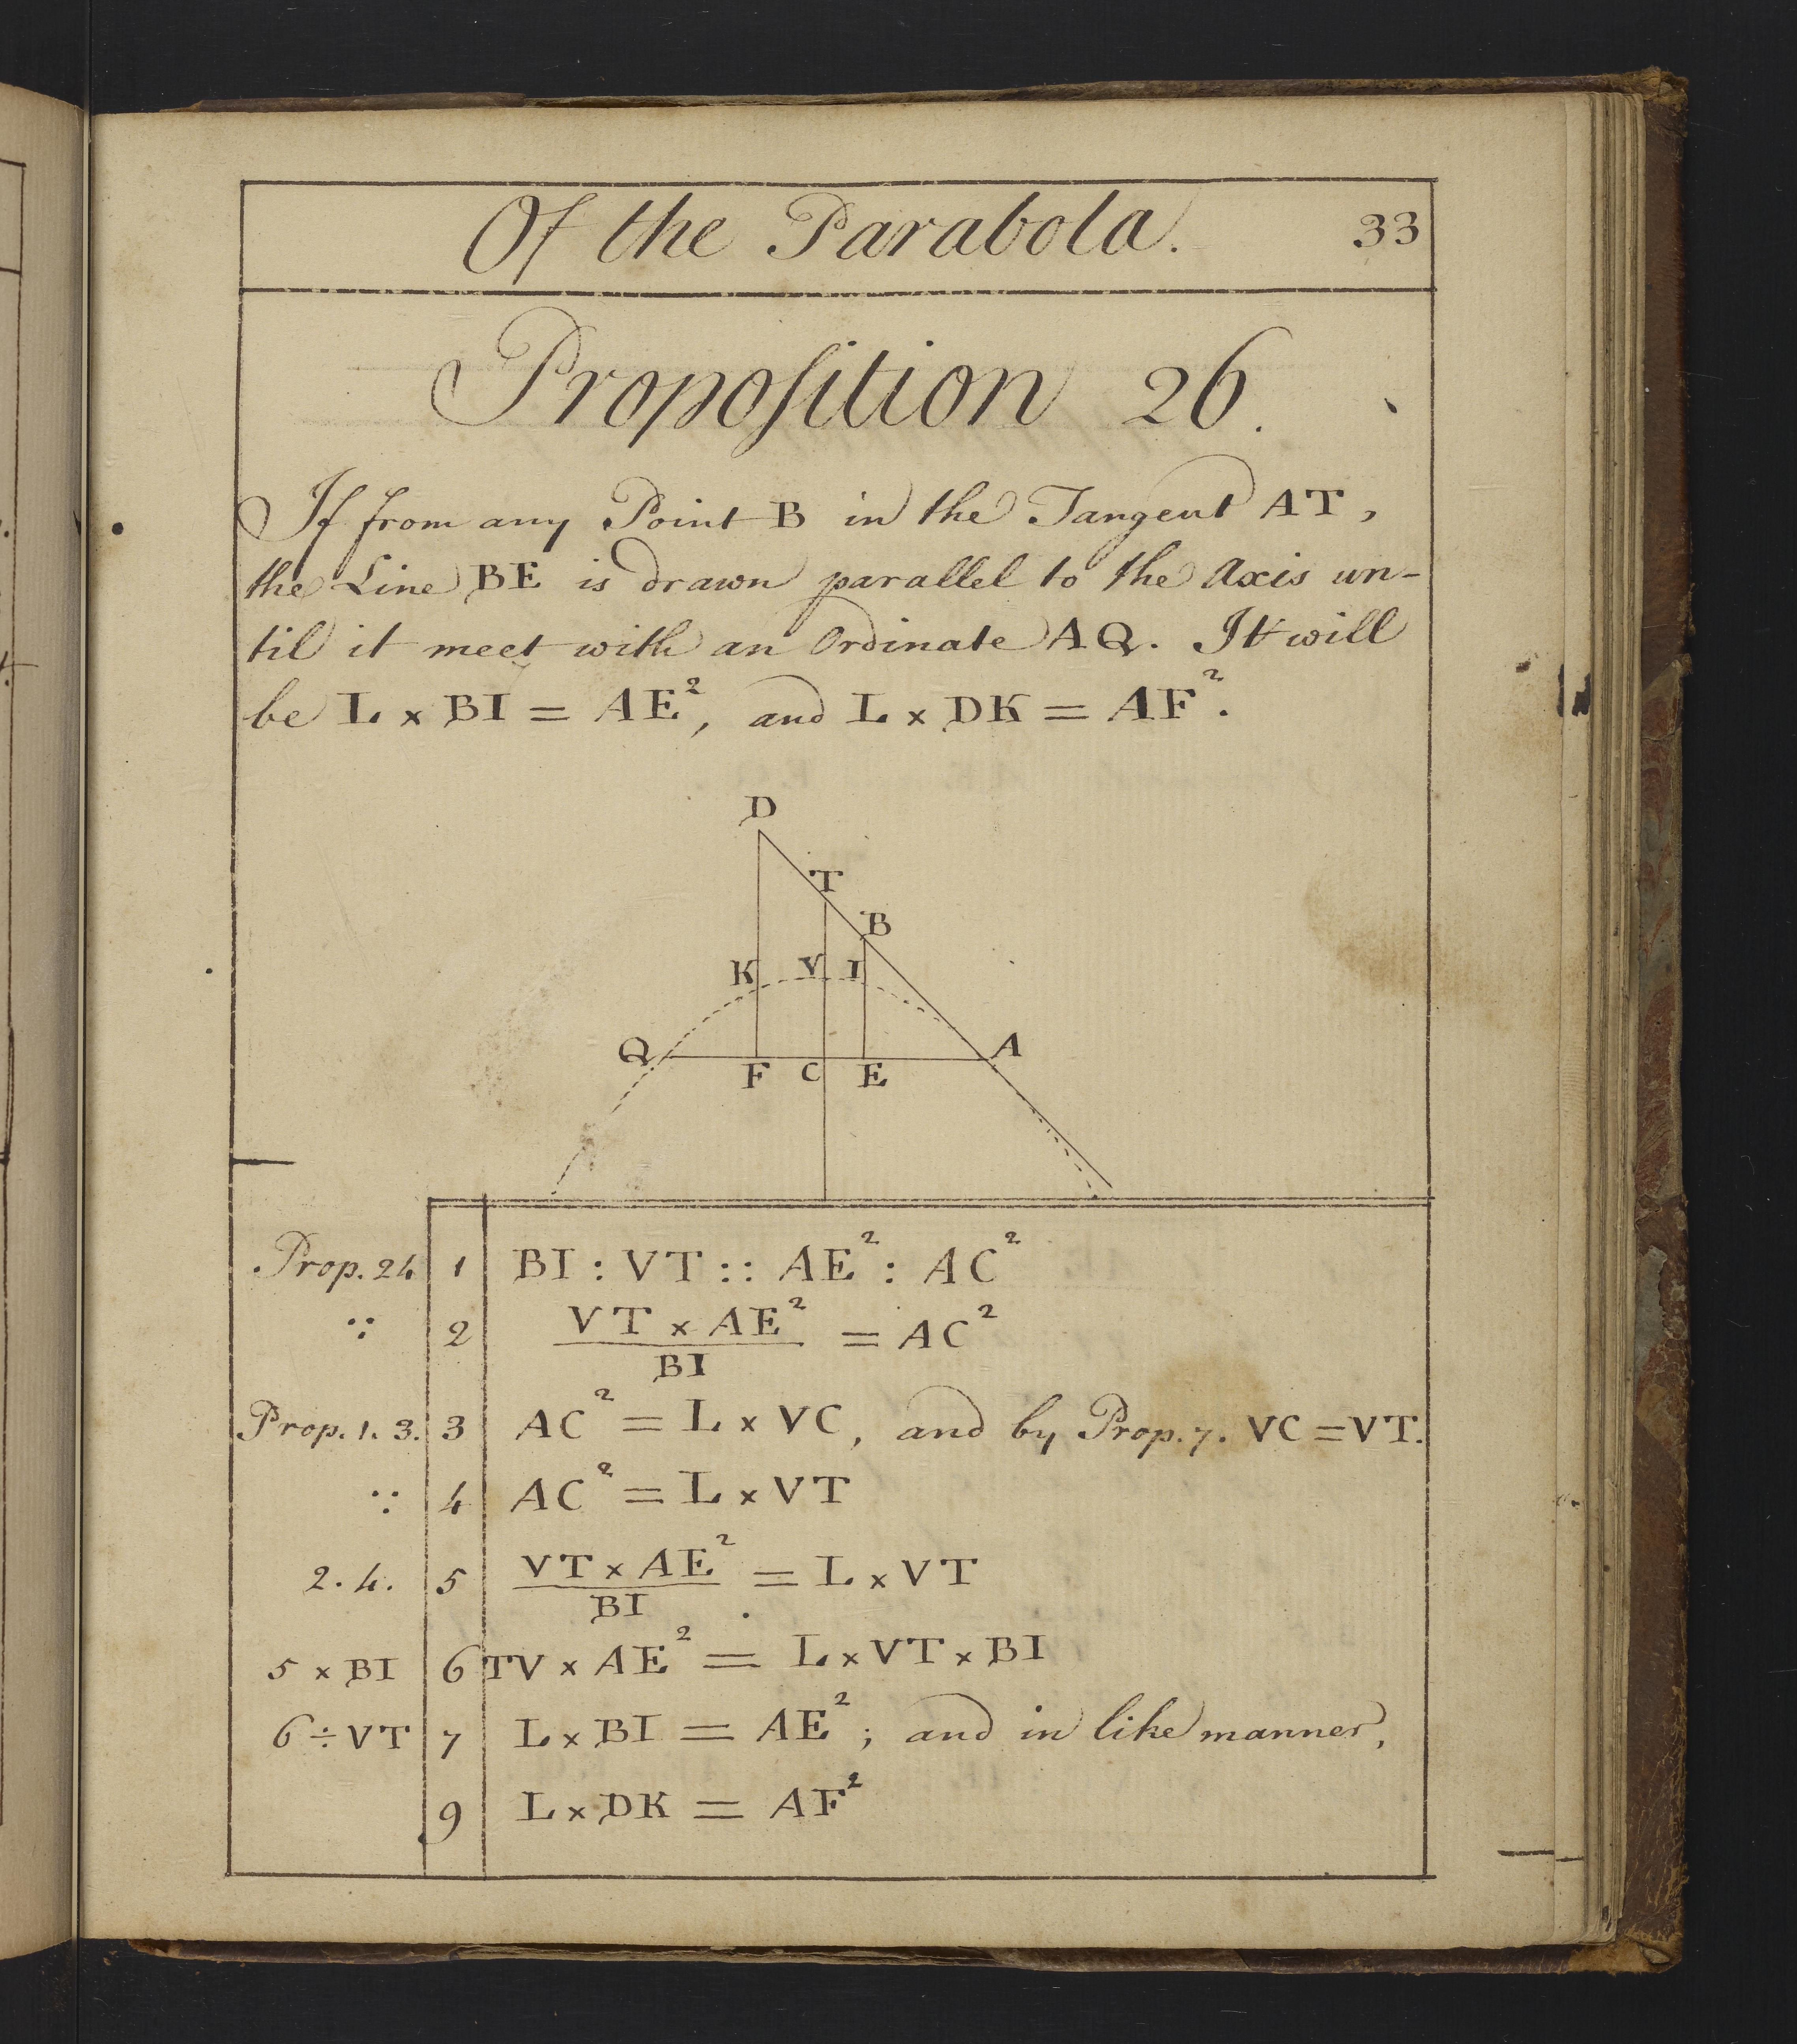 Of the Parabola. 33
Propoſition 26.
If from any Point B in the Tangent AT,
the Line BE is drawn parallel to the Axis un-
til it meet with an Ordinate AQ. It will
be L × BI = AE², and L × DK = AF².
D
T
B
K V I
Q A
F C E
Prop. 24 1 BI : VT :: AE² : AC²
∵ 2 VT × AE² / BI = AC²
Prop. 1. 3. 3 AC² = L × VC, and by Prop. 7. VC = VT.
∵ 4 AC² = L × VT
2. 4. 5 VT × AE² / BI = L × VT
5 × BI 6 TV × AE² = L × VT × BI
6 ÷ VT 7 L × BI = AE²; and in like manner,
9 L × DK = AF²